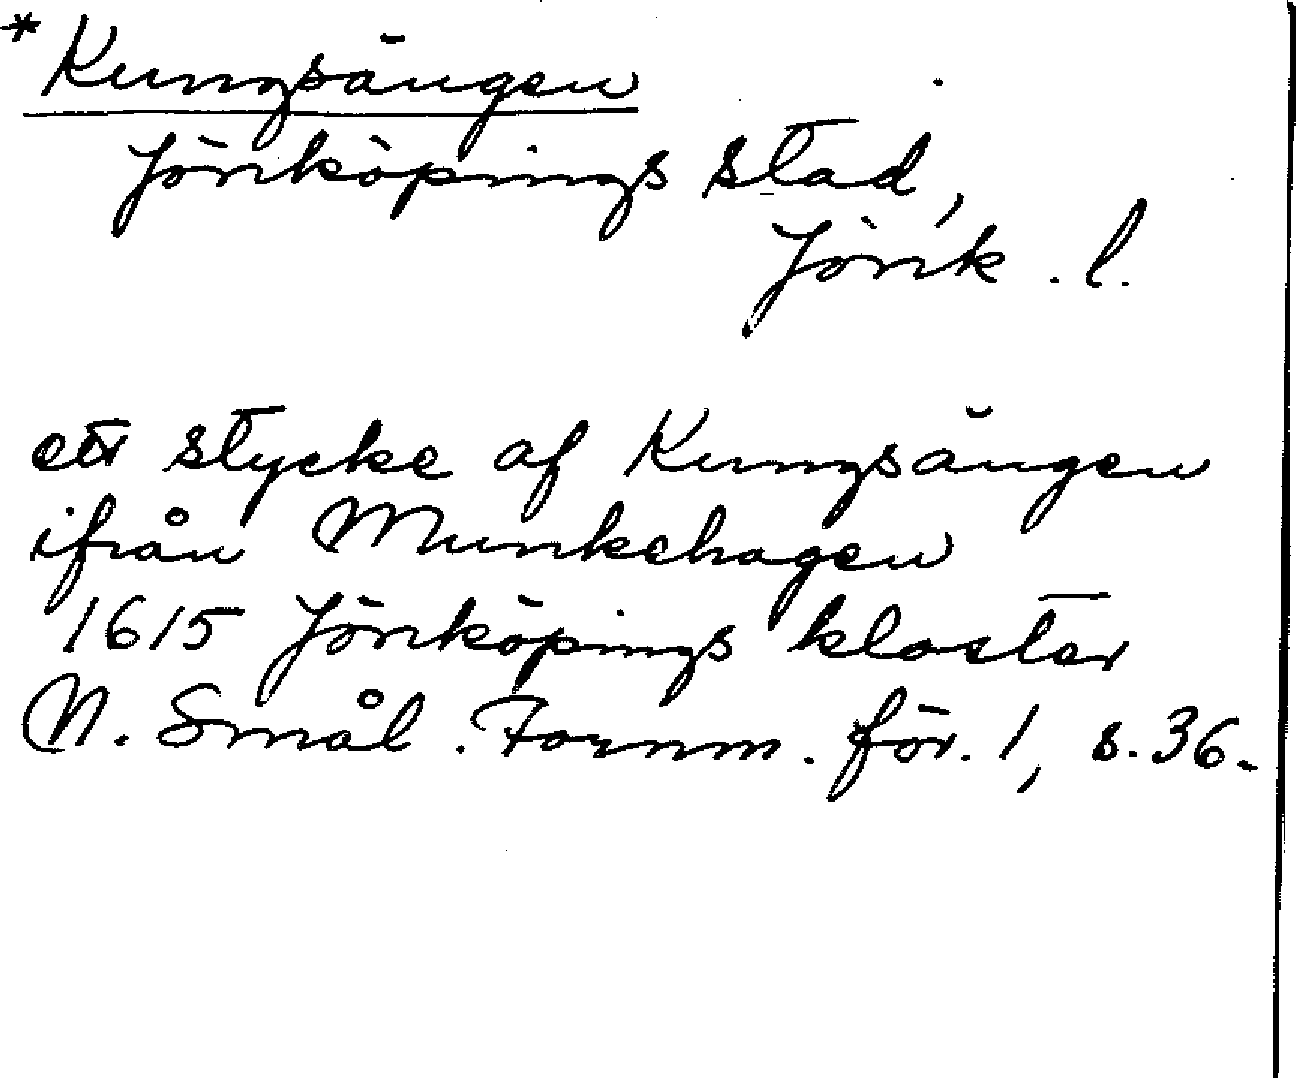 * Kungsängen
Jönköpings stad,
Jönk. l.
ett stycke af Kungsängen
ifrån Munkehagen
1615 Jönköpings kloster
N. Smål. Fornm. för. 1, s. 36.